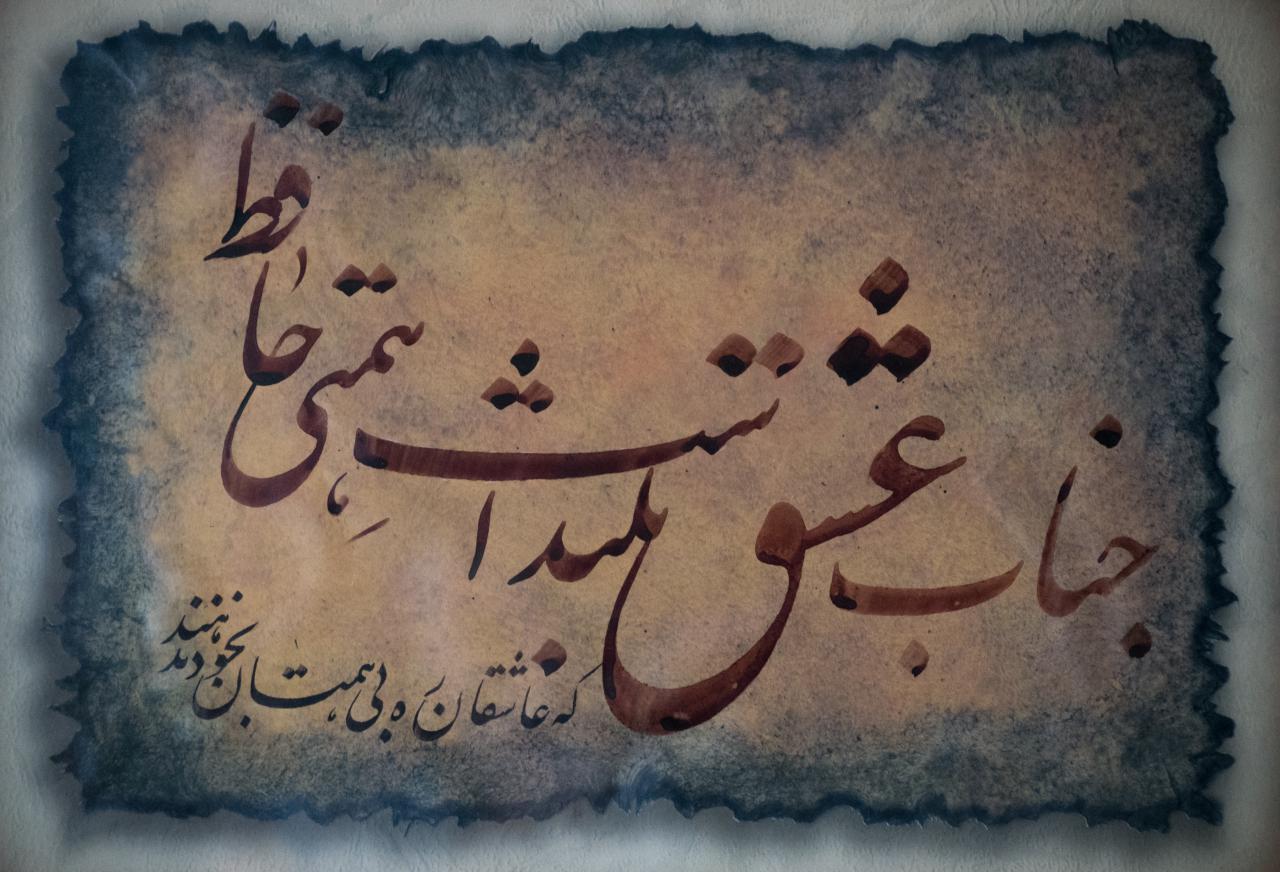 جناب عشق بلند است همتی حافظ
که عاشقان ره بی همتان بخود ندهند